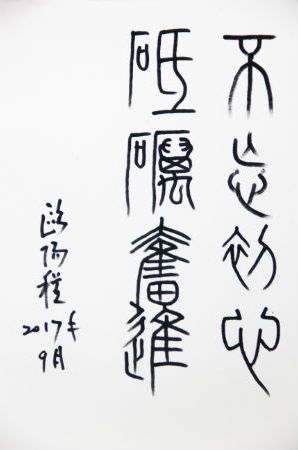 不忘初心
砥礪奮進
2017年
9月